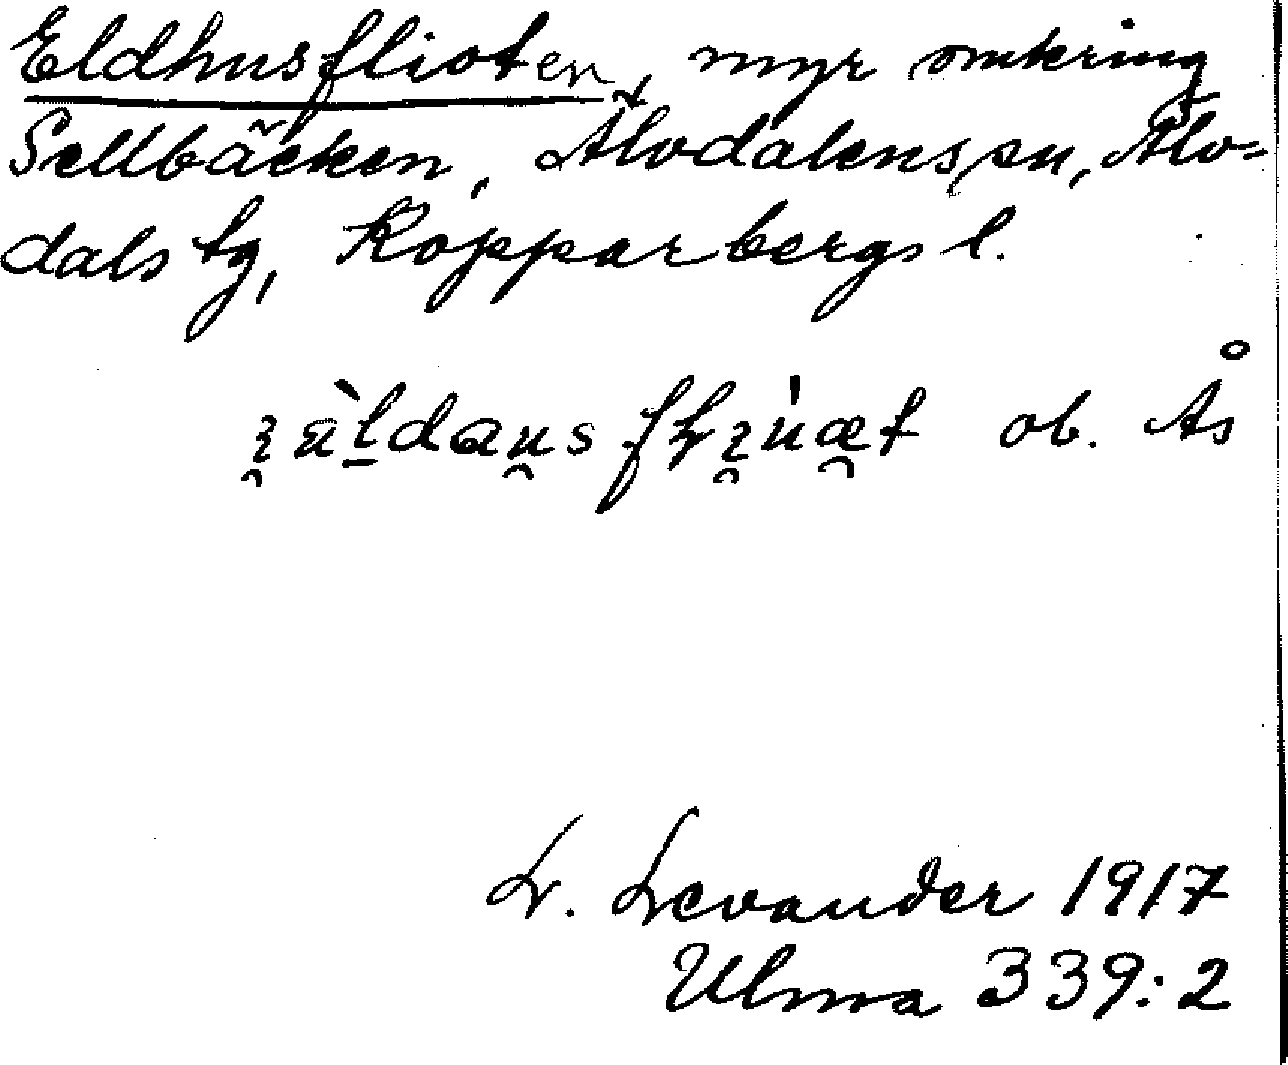 Eldhusflioten, myr omkring
Sellbäcken, Älvdalens sn, Älv-
dals tg, Kopparbergs l.
ob. Ås
L. Levander 1917
Ulma 339:2